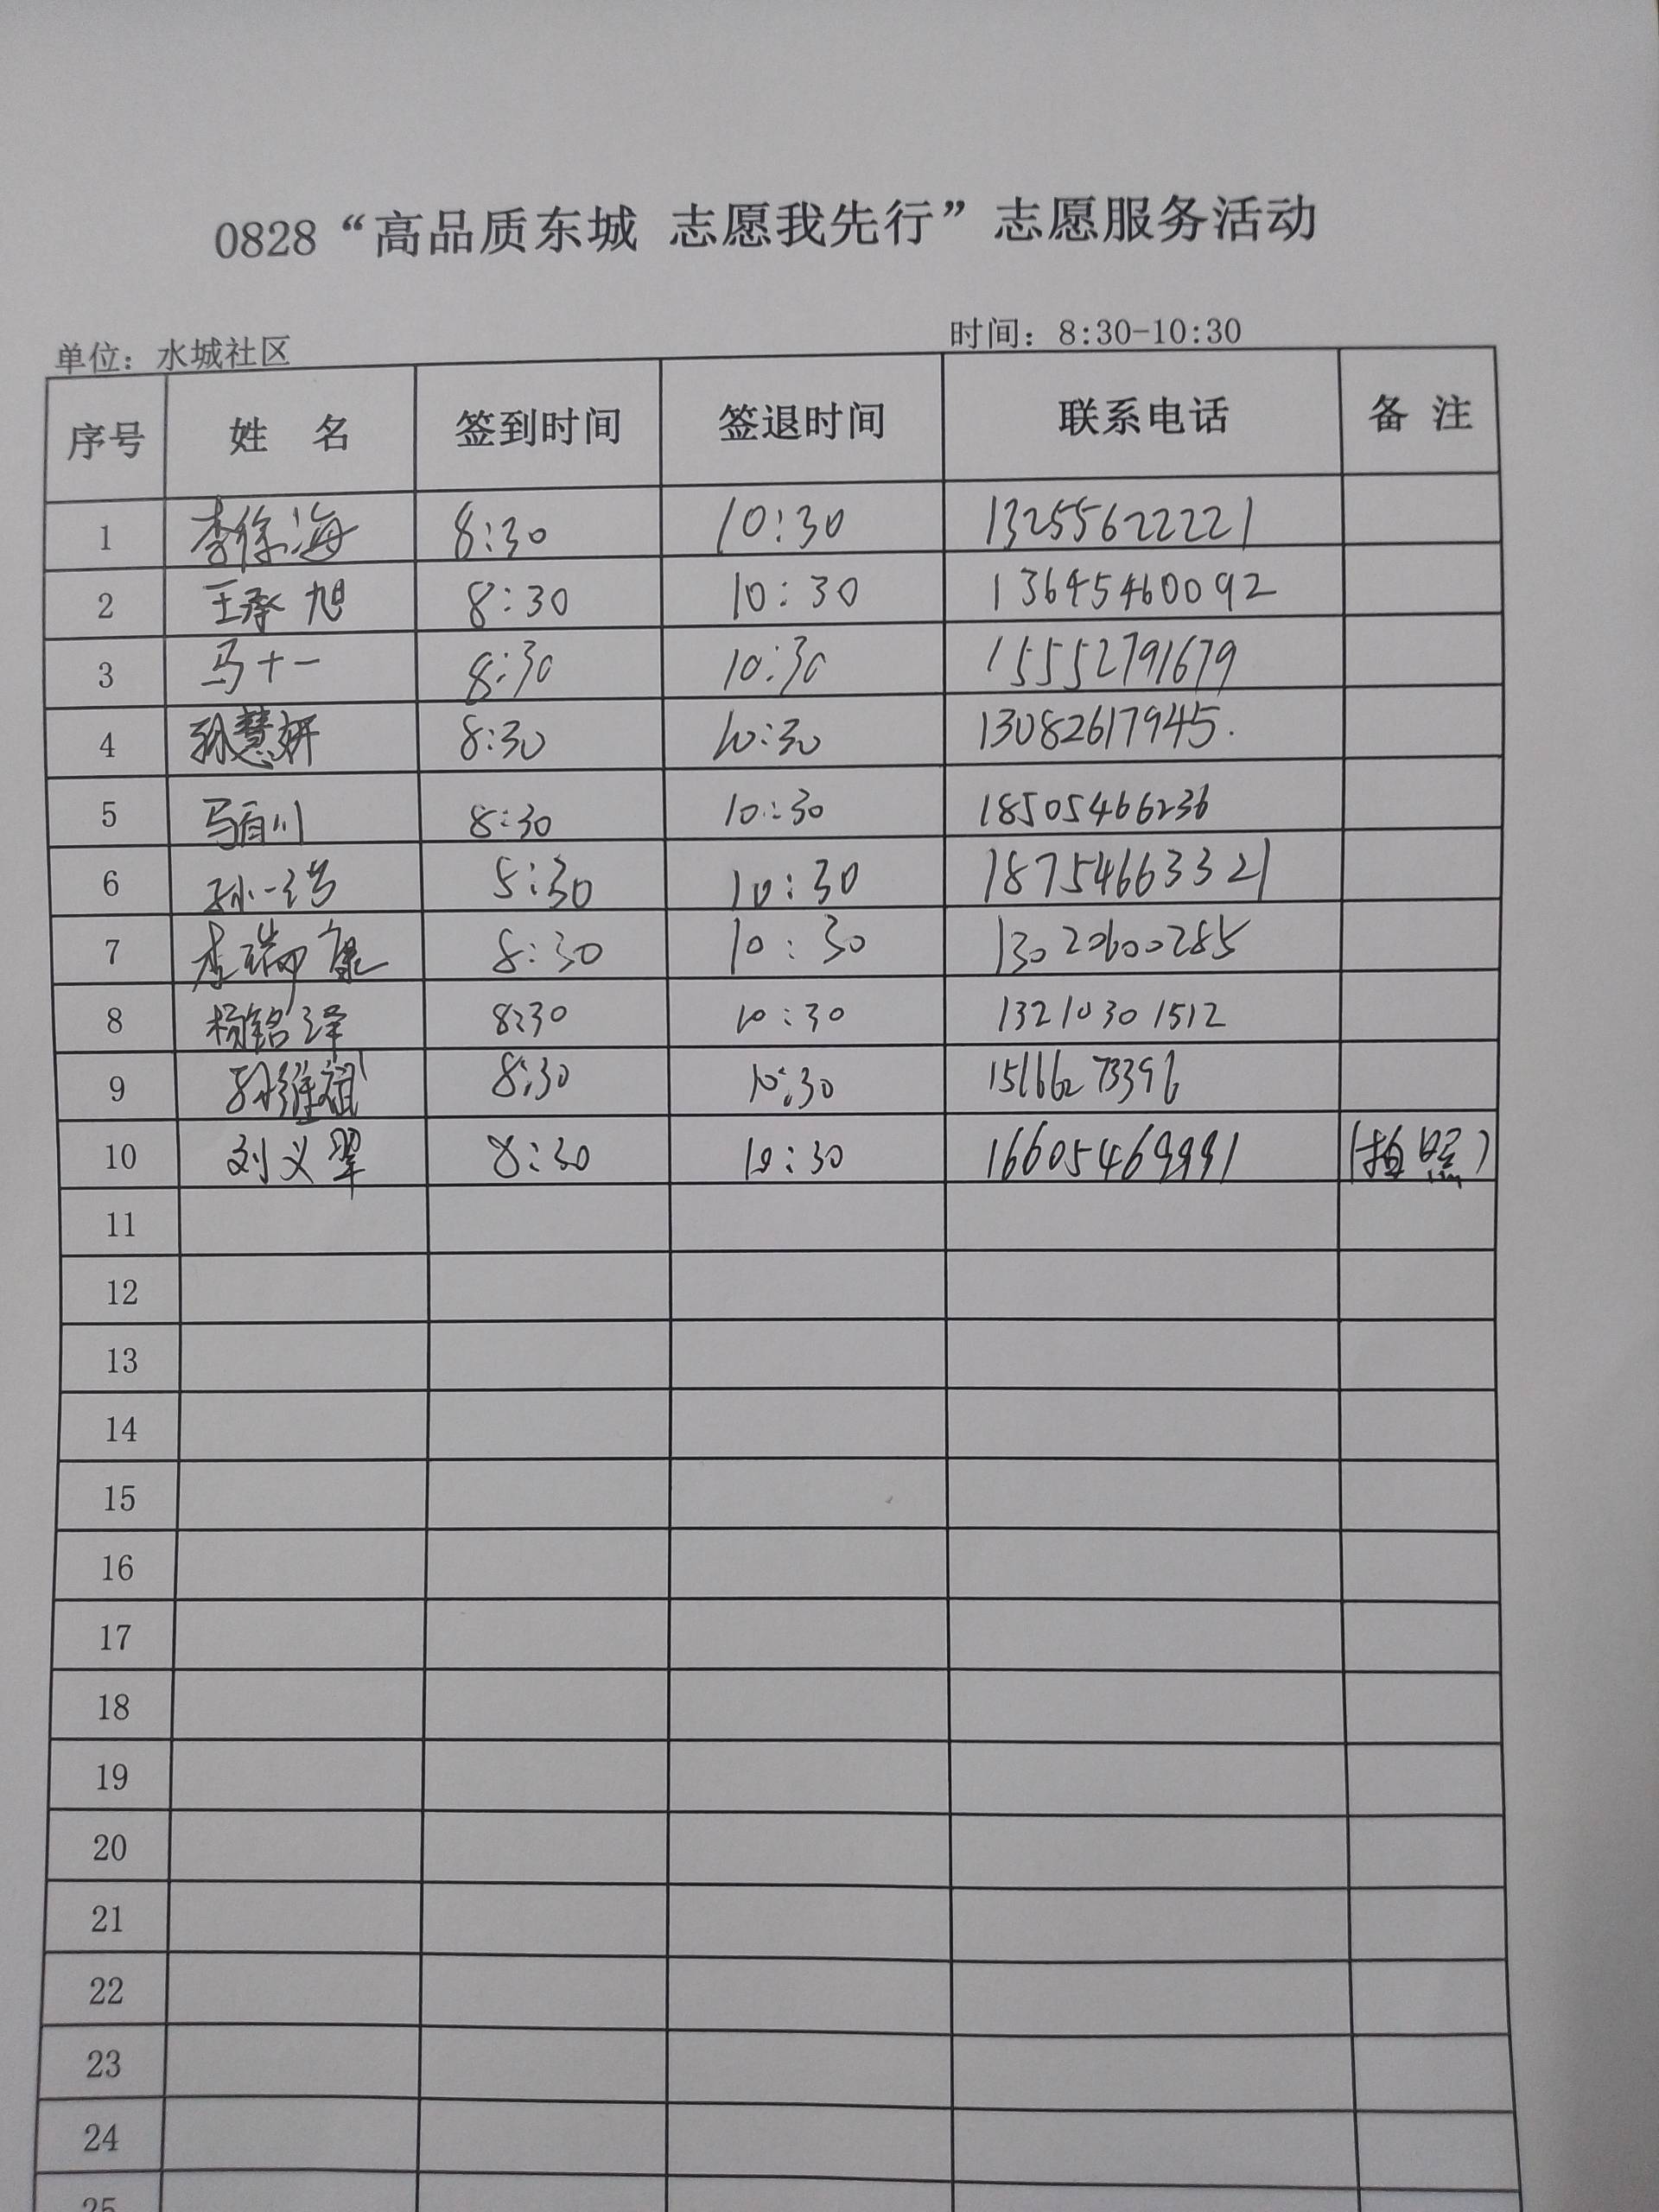 0828“高品质东城 志愿我先行”志愿服务活动
单位：水城社区 时间：8:30-10:30
序号 姓 名 签到时间 签退时间 联系电话 备 注
1 李徐海 8:30 10:30 13255622221
2 王承旭 8:30 10:30 13645460092
3 马十一 8:30 10:30 15552791679
4 孙慧妍 8:30 10:30 13082617945.
5 马百川 8:30 10:30 18505466236
6 孙一 5:30 10:30 18754663321
7 李瑞康 8:30 10:30 13020600285
8 杨铭泽 8:30 10:30 13210301512
9 孙维斌 8:30 10:30 15166273396
10 刘义翠 8:30 10:30 16605469991 (拍照)
11
12
13
14
15
16
17
18
19
20
21
22
23
24
25